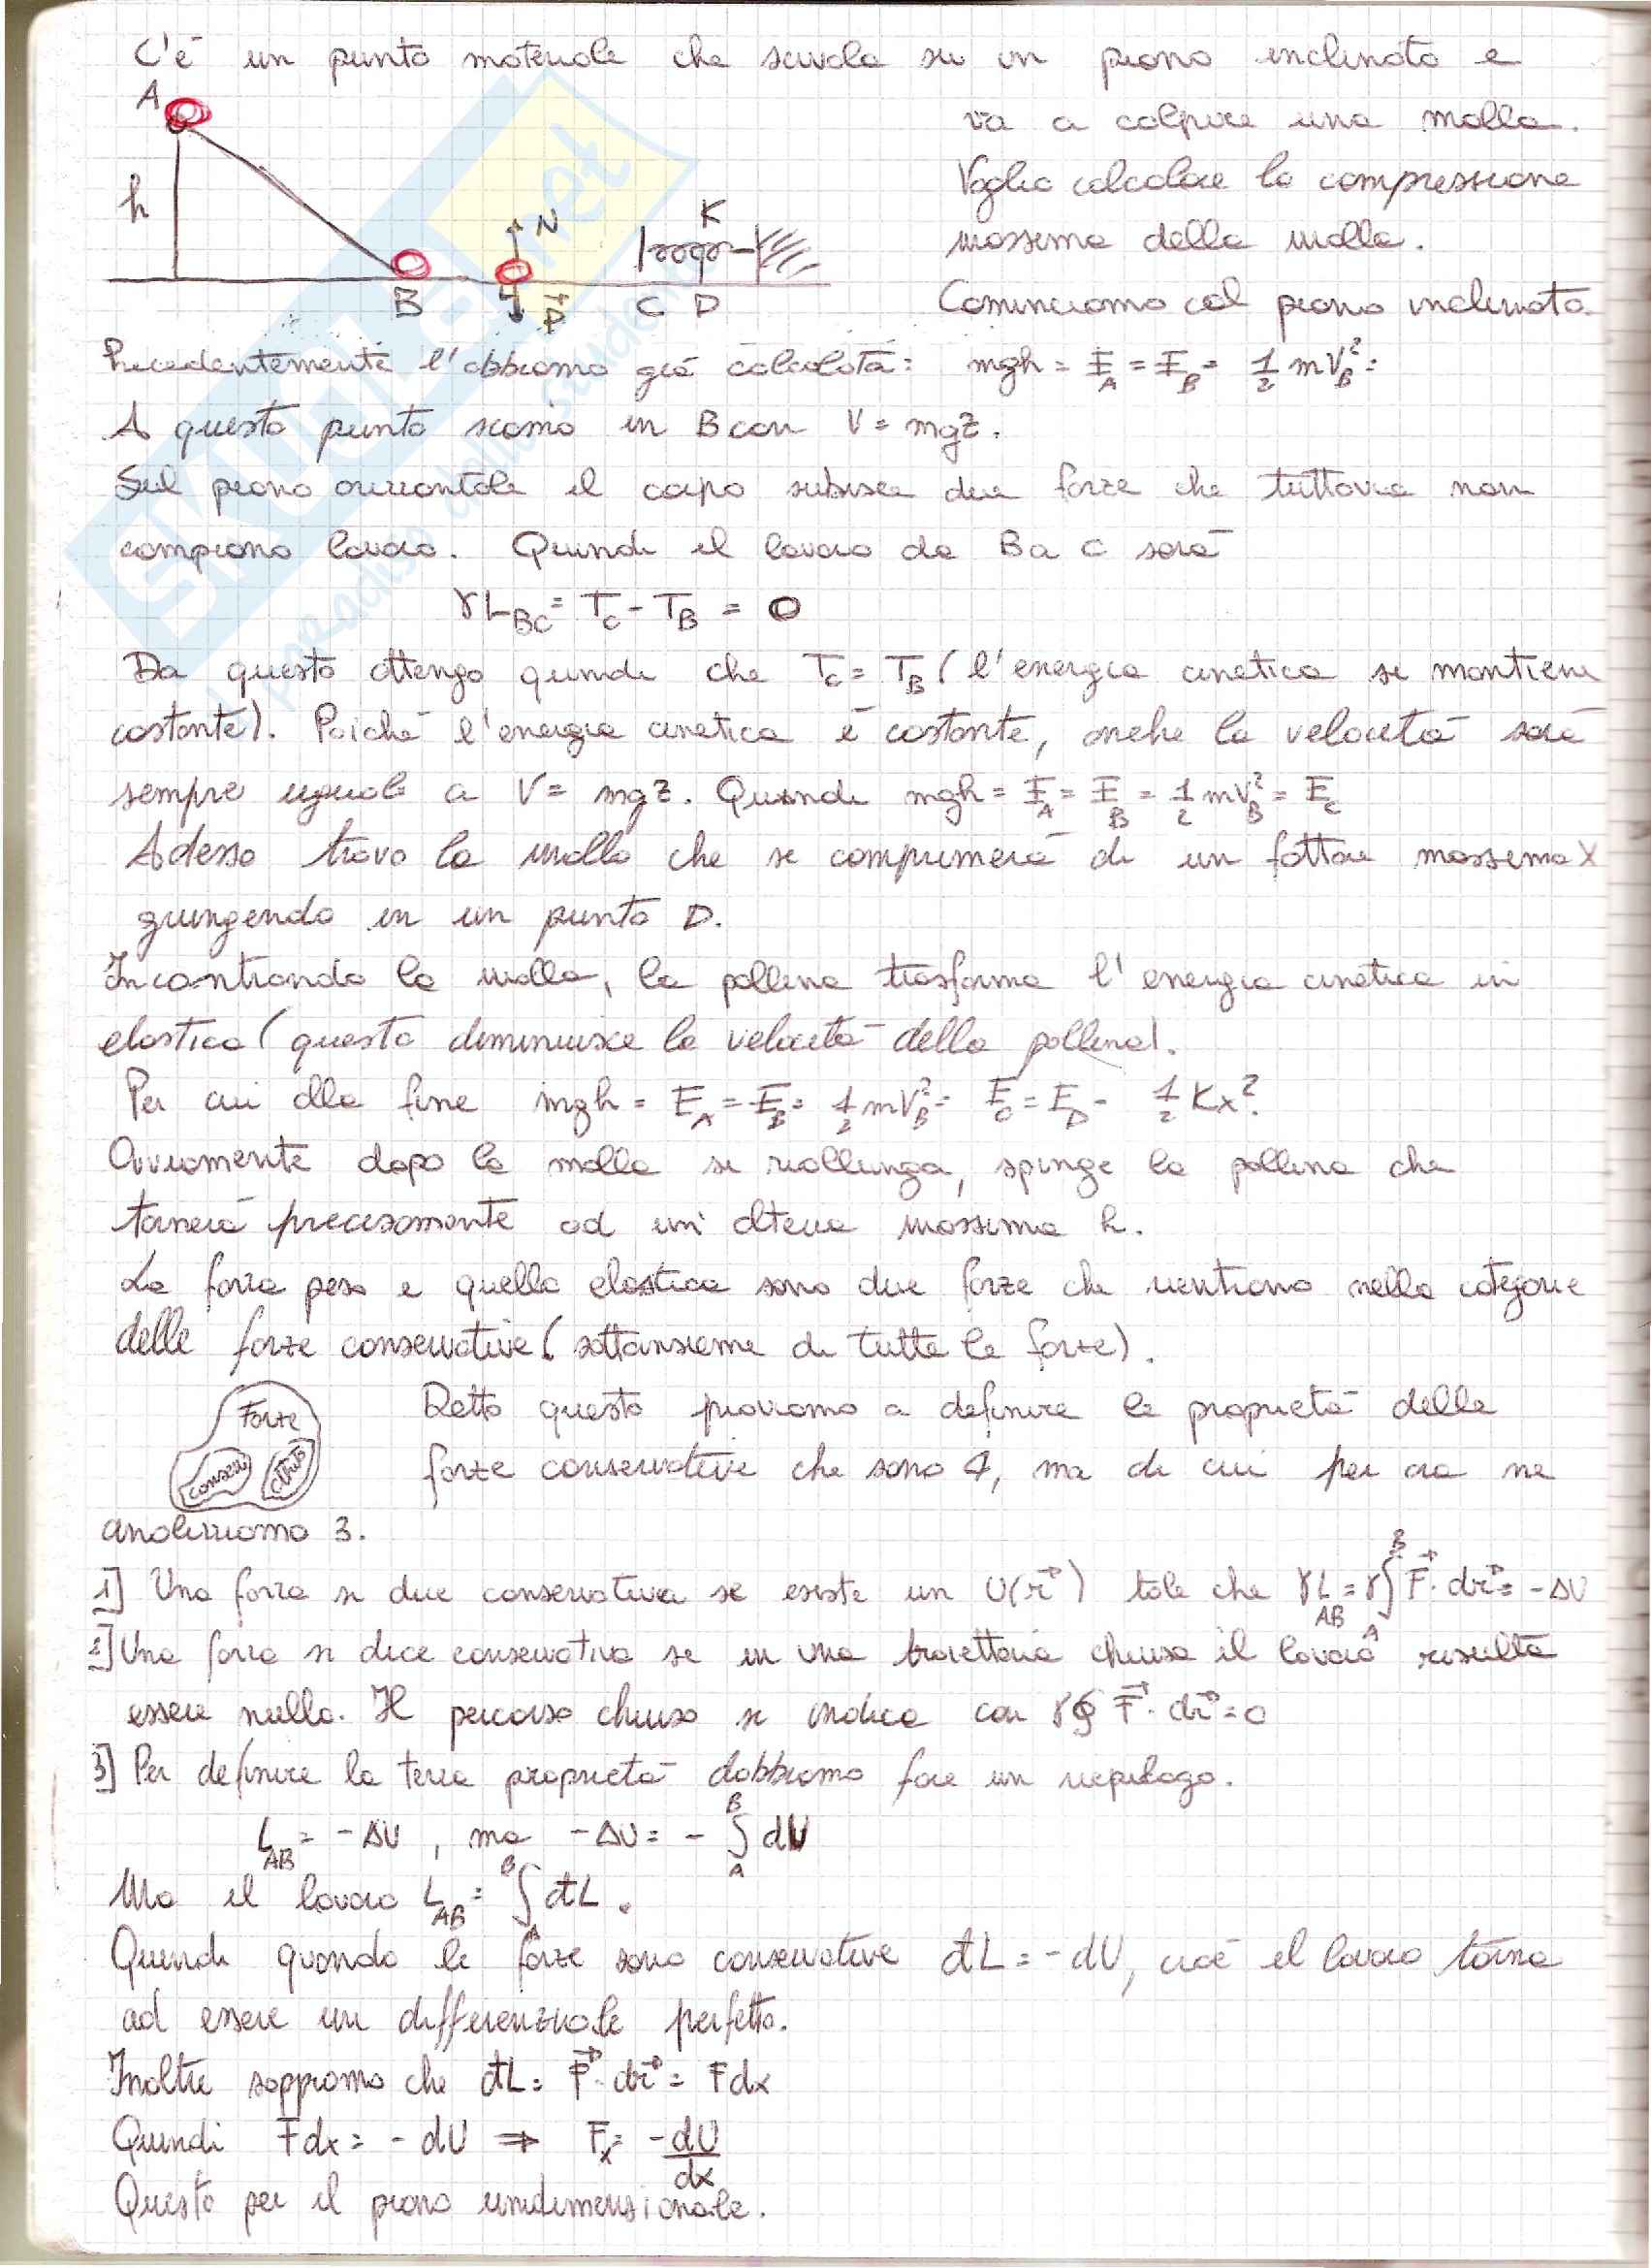 C'è un punto materiale che scivola su un piano inclinato e
A
va a colpire una molla.
Voglio calcolare la compressione
h
K
N
massima della molla.
B
P
C D
Cominciamo col piano inclinato.
Precedentemente l'abbiamo già calcolata: mgh = E_A = E_B = 1/2 mV_B² =
A questo punto siamo in B con V = mgz.
Sul piano orizzontale il corpo subisce due forze che tuttavia non
compiono lavoro. Quindi il lavoro da B a C sarà
γL_BC = T_C - T_B = 0
Da questo ottengo quindi che T_C = T_B (l'energia cinetica si mantiene
costante). Poiché l'energia cinetica è costante, anche la velocità sarà
sempre uguale a V = mgz. Quindi mgh = E_A = E_B = 1/2 mV_B² = E_C
Adesso trovo la molla che si comprimerà di un fattore massimo X
giungendo in un punto D.
Incontrando la molla, la pallina trasforma l'energia cinetica in
elastica (questo diminuisce la velocità della pallina).
Per cui alla fine mgh = E_A = E_B = 1/2 mV_B² = E_C = E_D - 1/2 Kx².
Ovviamente dopo la molla si riallunga, spinge la pallina che
tornerà precisamente ad un'altezza massima h.
La forza peso e quella elastica sono due forze che rientrano nella categoria
delle forze conservative (sottoinsieme di tutte le forze).
Forze
conserv.
attrito
Detto questo proviamo a definire le proprietà delle
forze conservative che sono 4, ma di cui per ora ne
analizziamo 3.
1] Una forza si dice conservativa se esiste un U(r⃗) tale che γL_AB = γ∫_A^B F⃗·dr⃗ = -ΔU
2] Una forza si dice conservativa se in una traiettoria chiusa il lavoro risulta
essere nullo. Il percorso chiuso si indica con γ∮ F⃗·dr⃗ = 0
3] Per definire la terza proprietà dobbiamo fare un riepilogo.
L_AB = -ΔU, ma -ΔU = -∫_A^B dU
Ma il lavoro L_AB = ∫_A^B đL.
Quindi quando le forze sono conservative đL = -dU, cioè il lavoro torna
ad essere un differenziale perfetto.
Inoltre sappiamo che đL = F⃗·dr⃗ = Fdx
Quindi Fdx = -dU ⇒ F_x = -dU/dx
Questo per il piano unidimensionale.